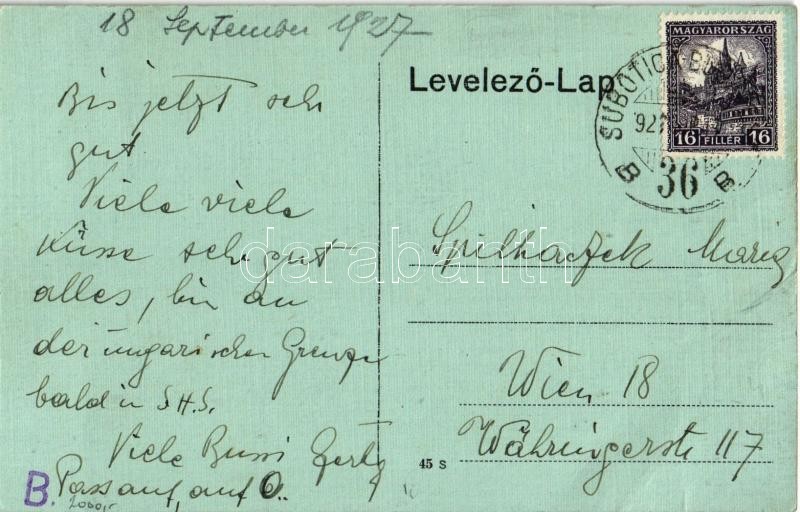 18 September 1927
Bis jetzt sehr
gut.
Viele viele
Küsse sehr gut
alles, bin an
der ungarischen Grenze
bald in S.H.S.
Viele Bussi
Pass auf, auf
B.
2000,-
Levelező-Lap
MAGYARORSZÁG
16 FILLÉR 16
SUBOTICA-B
927
B 36 B
darabanth
Spilhaczek Maria
Wien 18
Währingerstr 117
45 S